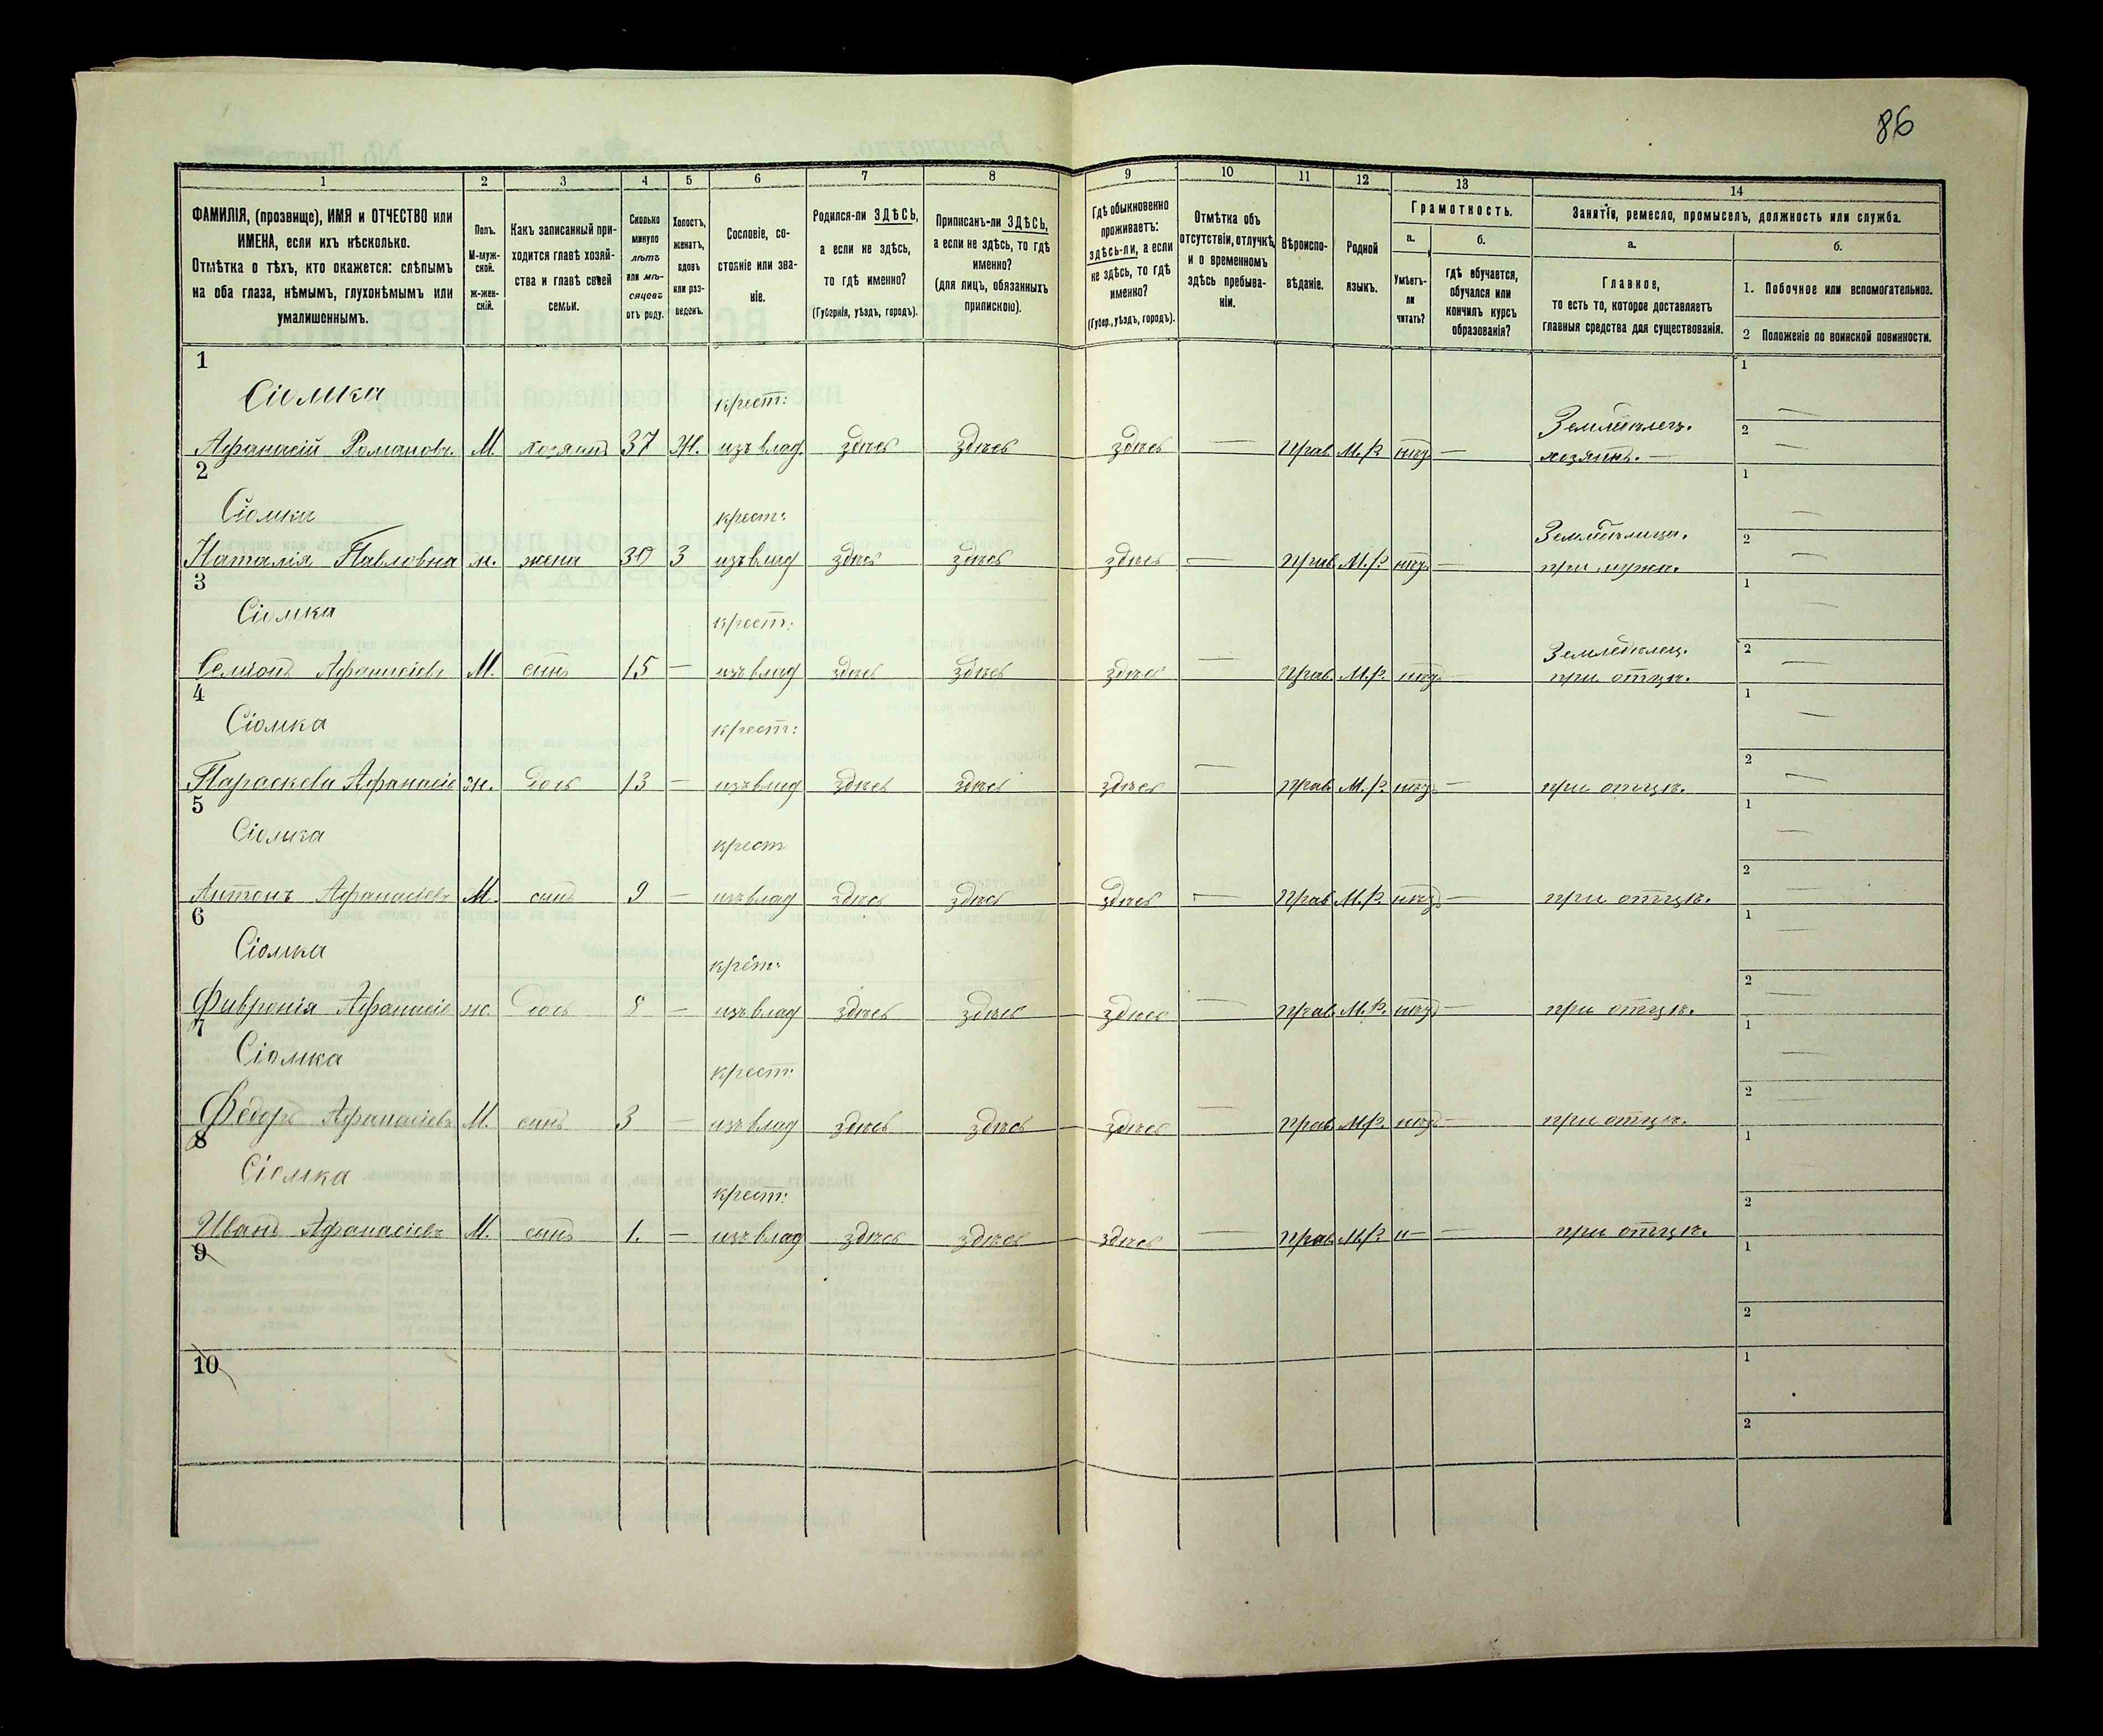 86
1 2 3 4 5 6 7 8 9 10 11 12 13 14
ФАМИЛІЯ, (прозвище), ИМЯ и ОТЧЕСТВО или
ИМЕНА, если ихъ нѣсколько.
Отмѣтка о тѣхъ, кто окажется: слѣпымъ
на оба глаза, нѣмымъ, глухонѣмымъ или
умалишеннымъ.
Полъ.
М-муж-
ской.
Ж-жен-
скій.
Какъ записанный при-
ходится главѣ хозяй-
ства и главѣ своей
семьи.
Сколько
минуло
лѣтъ
или мѣ-
сяцевъ
отъ роду.
Холостъ,
женатъ,
вдовъ
или раз-
веденъ.
Сословіе, со-
стояніе или зва-
ніе.
Родился-ли ЗДѢСЬ,
а если не здѣсь,
то гдѣ именно?
(Губернія, уѣздъ, городъ).
Приписанъ-ли ЗДѢСЬ,
а если не здѣсь, то гдѣ
именно?
(для лицъ, обязанныхъ
припискою).
Гдѣ обыкновенно
проживаетъ:
здѣсь-ли, а если
не здѣсь, то гдѣ
именно?
(Губер., уѣздъ, городъ).
Отмѣтка объ
отсутствіи, отлучкѣ
и о временномъ
здѣсь пребыва-
ніи.
Вѣроиспо-
вѣданіе.
Родной
языкъ.
Грамотность.
а.
Умѣетъ-
ли
читать?
б.
гдѣ обучается,
обучался или
кончилъ курсъ
образованія?
Занятіе, ремесло, промыселъ, должность или служба.
а.
Главное,
то есть то, которое доставляетъ
главныя средства для существованія.
б.
1. Побочное или вспомогательное.
2 Положеніе по воинской повинности.
1
Сіомка крест: Земледѣлец. 1 —
Афанасій Романовъ. М. хозяинъ 37 Ж. изъ влад. здѣсь здѣсь здѣсь — Прав. М.Р. нѣтъ — хозяинъ. — 2 —
2
Сіомка крест: 1 —
Наталія Павловна ж. жена 30 З изъ влад здѣсь здѣсь здѣсь — Прав. М.Р. нѣтъ — при мужѣ. 2 —
3
Сіомка крест: Земледѣлец. 1 —
Семіонъ Афанасіевъ М. сынъ 15 — изъ влад здѣсь здѣсь здѣсь — Прав. М.Р. нѣтъ — при отцѣ. 2 —
4
Сіомка крест: 1 —
Параскева Афанасіе ж. дочь 13 — изъ влад здѣсь здѣсь здѣсь — Прав. М.Р. нѣтъ — при отцѣ. 2 —
5
Сіомка крест 1 —
Антонъ Афанасіевъ М. сынъ 9 — изъ влад здѣсь здѣсь здѣсь — Прав М.Р. нѣтъ — при отцѣ. 2 —
6
Сіомка крет: 1 —
Фивронія Афанасіе ж. дочь 8 — изъ влад здѣсь здѣсь здѣсь — Прав. М.Р. нѣтъ — при отцѣ. 2 —
7
Сіомка крест: 1 —
Федоръ Афанасіевъ М. сынъ 3 — изъ влад здѣсь здѣсь здѣсь — Прав М.Р. нѣтъ — при отцѣ. 2 —
8
Сіомка крест: 1 —
Иванъ Афанасіевъ М. сынъ 1. — изъ влад здѣсь здѣсь здѣсь — Прав. М.Р. н— — при отцѣ. 2
9 1
2
10 1
2